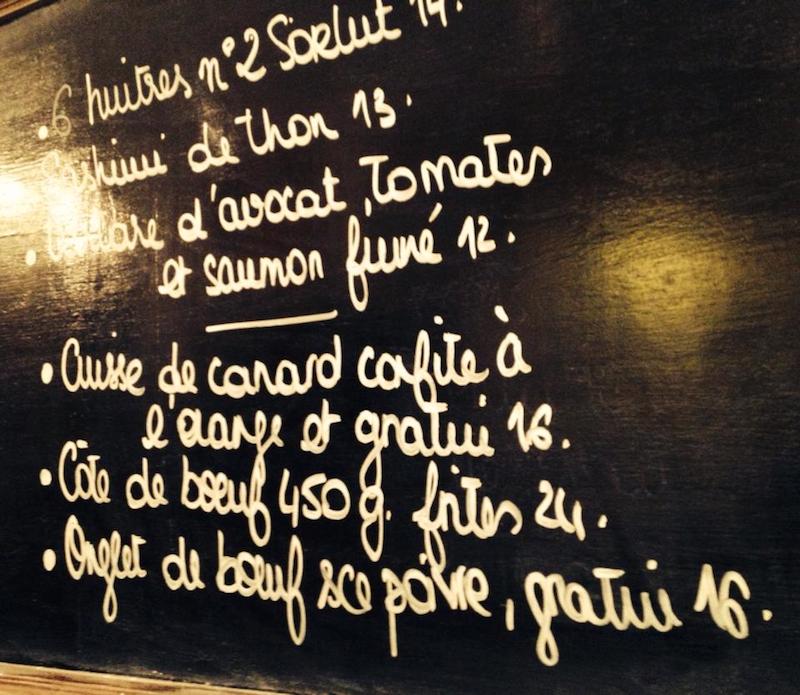 • 6 huitres n°2 Sorlut 14.
Sashimi de thon 13.
• d'avocat, tomates
et saumon fumé 12.
• Cuisse de canard cofite à
l'orange et gratin 16.
• Côte de bœuf 450 g. frites 24.
• Onglet de bœuf sce poivre, gratin 16.